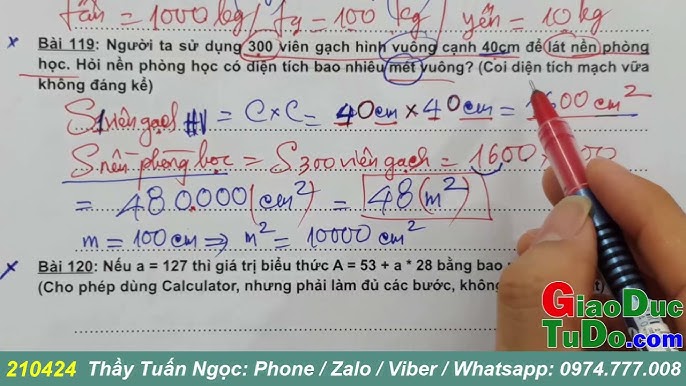 tấn = 1000 kg / tạ = 100 kg / yến = 10 kg
x Bài 119: Người ta sử dụng 300 viên gạch hình vuông cạnh 40cm để lát nền phòng
học. Hỏi nền phòng học có diện tích bao nhiêu mét vuông? (Coi diện tích mạch vữa
không đáng kể)
S1viên gạch HV = C×C = 40cm×40cm = 1600 cm²
S nền phòng học = S300 viên gạch = 1600
= 480.000(cm²) = 48(m²)
m = 100cm ⇒ m² = 10000 cm²
x Bài 120: Nếu a = 127 thì giá trị biểu thức A = 53 + a * 28 bằng bao
(Cho phép dùng Calculator, nhưng phải làm đủ các bước, không
GiaoDuc
TuDo.com
210424 Thầy Tuấn Ngọc: Phone / Zalo / Viber / Whatsapp: 0974.777.008